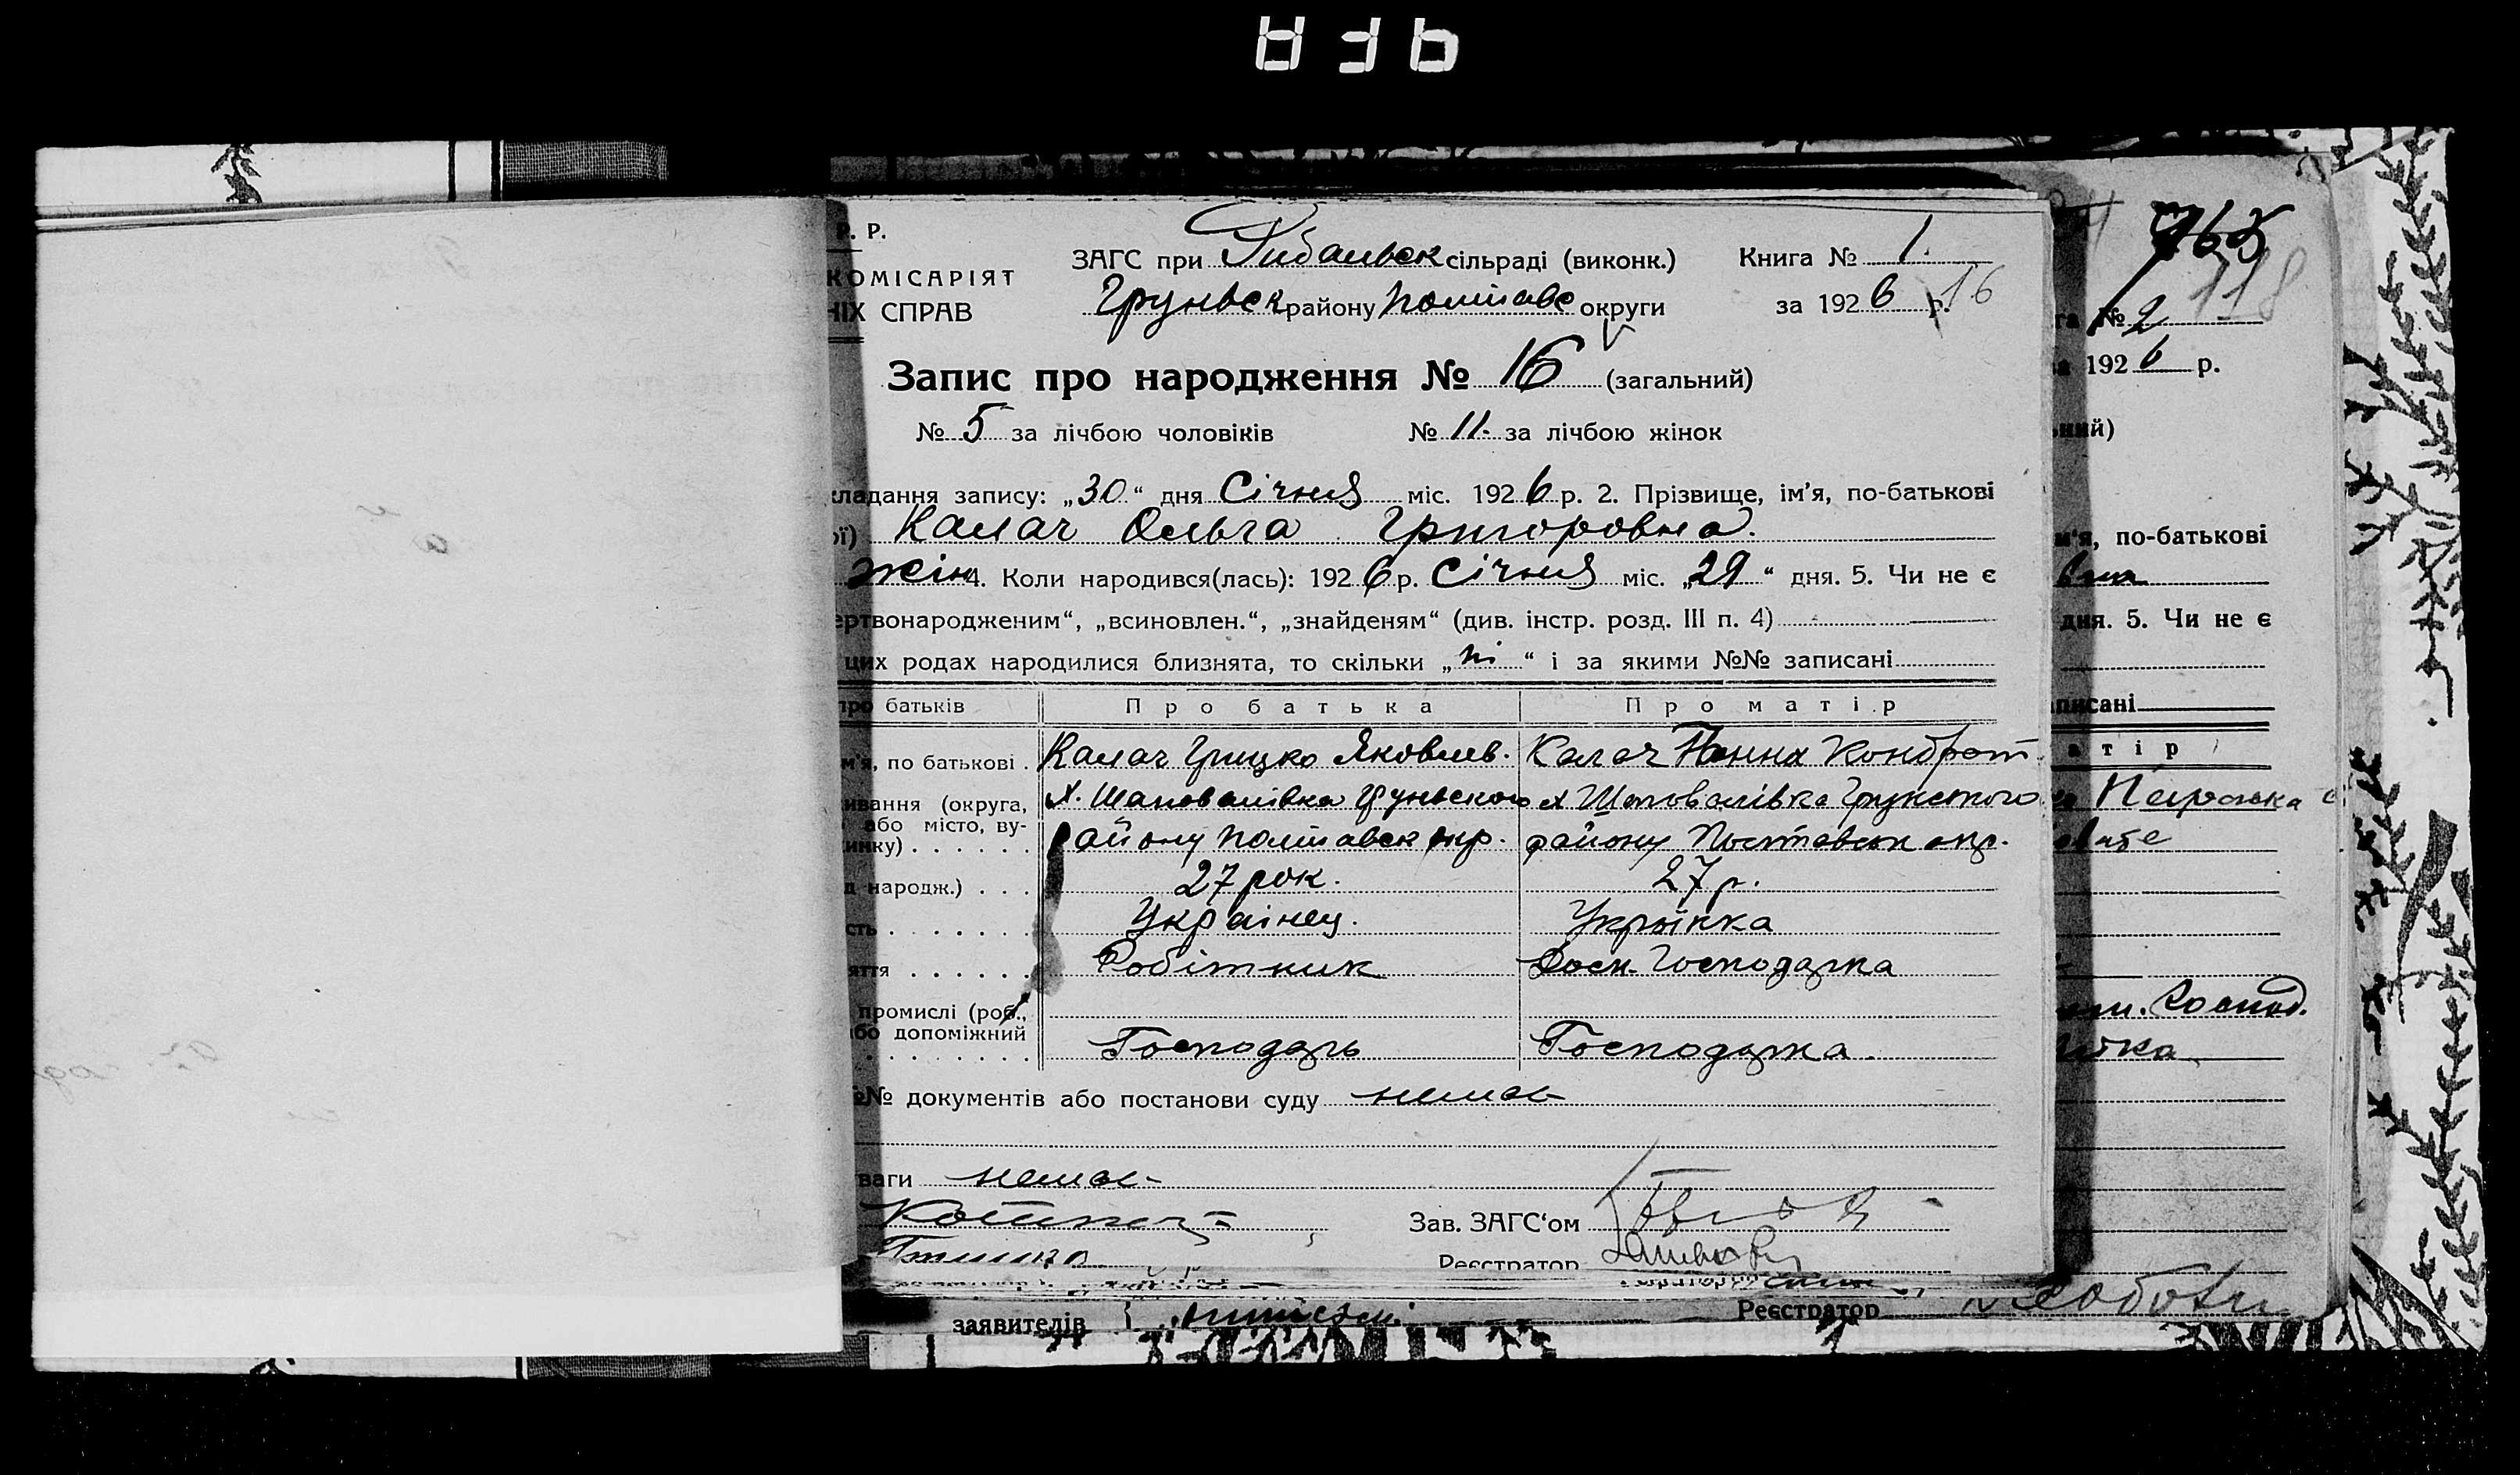 Р. Р.
ЗАГС при Рибальськ сільраді (виконк.) Книга № 1.
КОМІСАРІЯТ
Груньськ району Полтавс округи за 1926 р. 16
НІХ СПРАВ
Запис про народження № 16 (загальний)
№ 5 за лічбою чоловіків № 11. за лічбою жінок
кладання запису: „30“ дня Січня міс. 1926 р. 2. Прізвище, ім’я, по-батькові
ої) Калач Ольга Григоровна.
жін 4. Коли народився(лась): 1926 р. Січня міс. „29“ дня. 5. Чи не є
ертвонародженим“, „всиновлен.“, „знайденям“ (див. інстр. розд. III п. 4)
цих родах народилися близнята, то скільки „ні“ і за якими №№ записані
про батьків Про батька Про матір
м’я, по батькові . Калач Грицко Яковлев. Калач Ганна Кондрат
ивання (округа, Х. Шаповалівка Груньского х Шаповалівка Грунского
або місто, ву-
инку) . . . . . . району Полтавськ окр. району Полтавськ окр.
д народж.) . . . 27 рок. 27 р.
сть . . . . . . . Українец. Українка
яття . . . . . . Робітник Дом. Господарка
промислі (роб.,
або допоміжний
. . . . . . . . . Господарь Господарка.
№№ документів або постанови суду немає
уваги немає
Зав. ЗАГС‘ом
Реєстратор
заявителів Реєстратор
765
118
га № 2
за 1926 р.
ьний)
м’я, по-батькові
дня. 5. Чи не є
аписані
а т і р